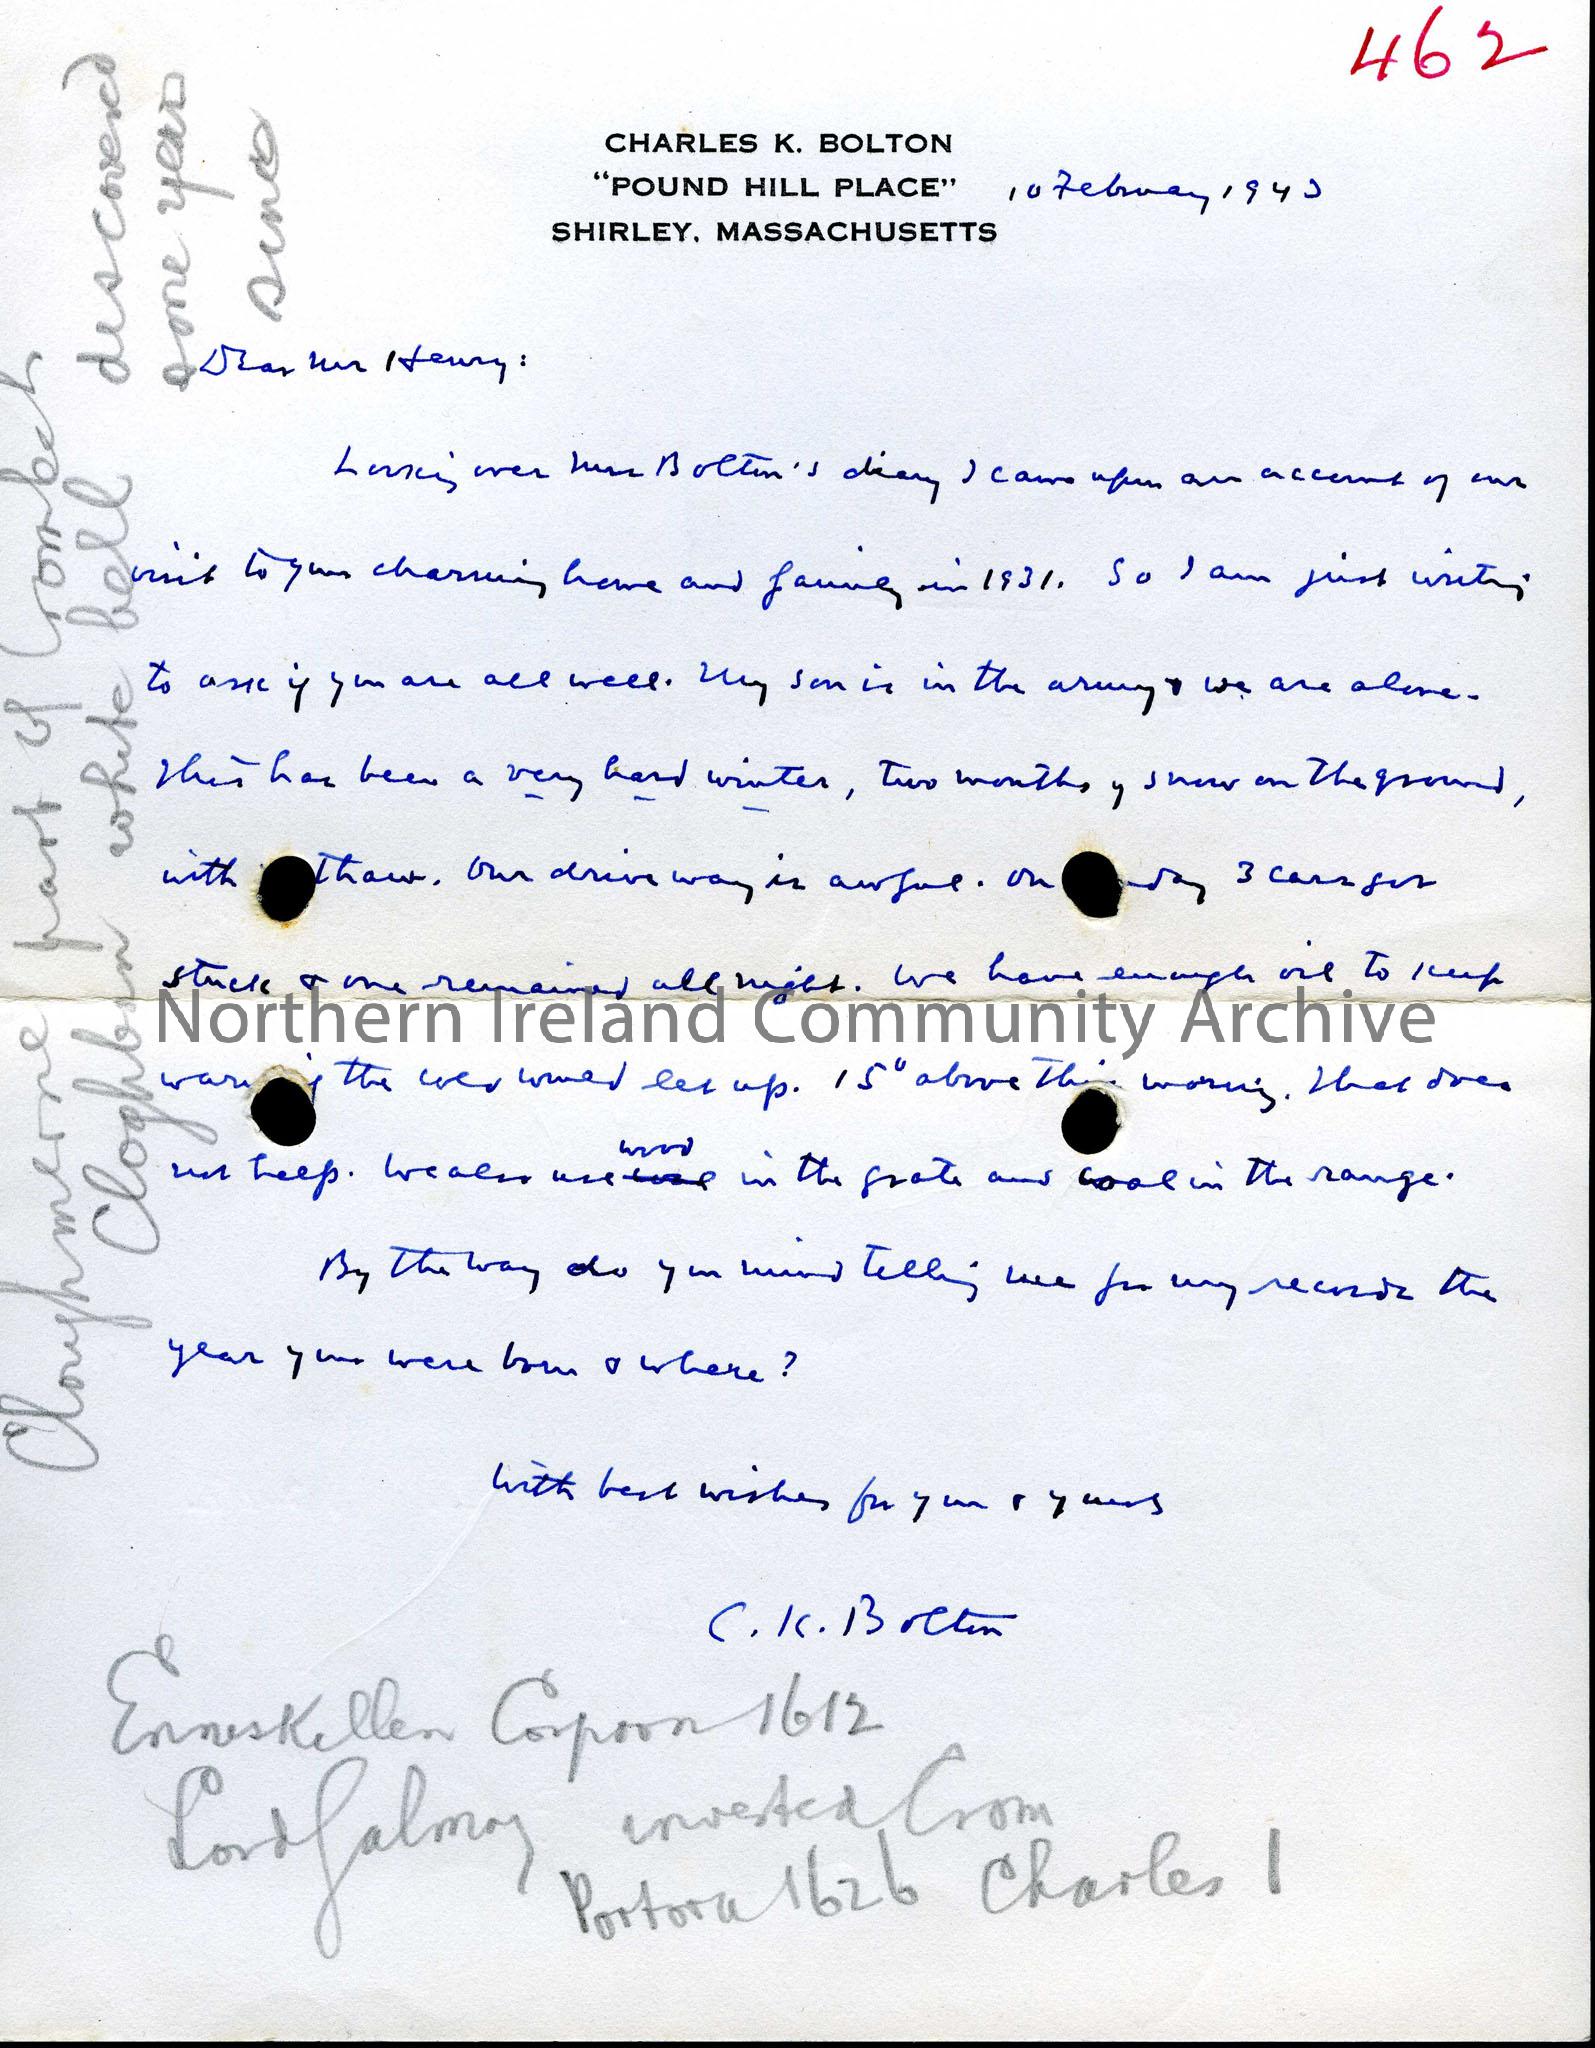 462
CHARLES K. BOLTON
"POUND HILL PLACE" 10 February 1943
SHIRLEY, MASSACHUSETTS
Dear Mr Henry:
Looking over Mrs Bolton's diary I came upon an account of our
visit to your charming home and family in 1931. So I am just writing
to ask if you are all well. My son is in the army & we are alone.
This has been a very hard winter, two months of snow on the ground,
with thaw. Our driveway is awful. On day 3 cars got
stuck & one remained all night. We have enough oil to keep
warm if the cold would let up. 15° above this morning. That does
not help. We also use coal wood in the grate and coal in the range.
By the way do you mind telling me for my records the
year you were born & where?
With best wishes for you & yours
C. K. Bolton
Enneskellen 1612
Lord Galmoy invested Crom
Portora 1626 Charles I
Cloughmere part of
Cloghbin white bell discovered
some years
since
Northern Ireland Community Archive